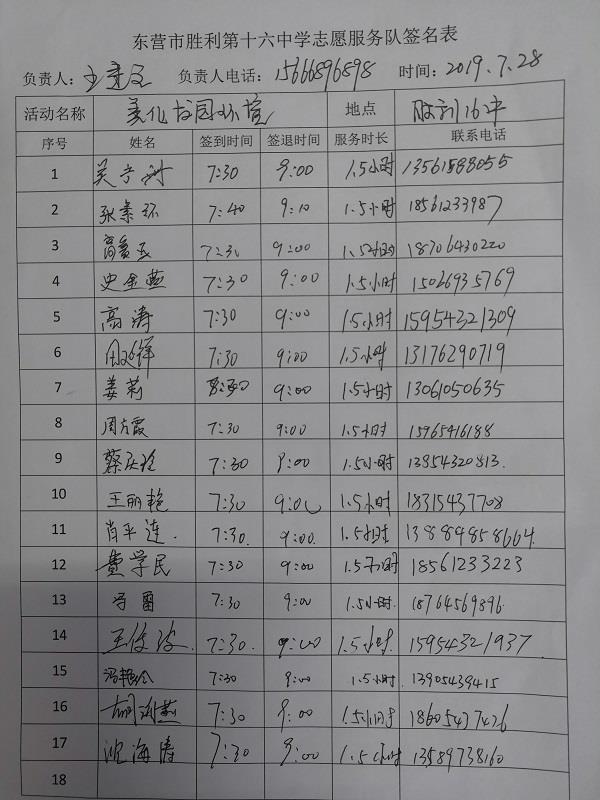 东营市胜利第十六中学志愿服务队签名表
负责人: 负责人电话:15666896898 时间:2019.7.28
活动名称 美化校园环境 地点 胜利16中
序号 姓名 签到时间 签退时间 服务时长 联系电话
1 7:30 9:00 1.5小时 13561588055
2 张素环 7:40 9:10 1.5小时 18561233987
3 7:30 9:00 1.5小时 18706430220
4 史金燕 7:30 9:00 1.5小时 15026935769
5 高涛 7:30 9:00 1.5小时 15954321309
6 7:30 9:00 1.5小时 13176290719
7 姜莉 9:00 1.5小时 13061050635
8 周方霞 7:30 9:00 1.5小时 15965416188
9 蔡庆玲 7:30 9:00 1.5小时 13854320813.
10 王丽艳 7:30 9:00 1.5小时 18315437708
11 肖平连. 7:30. 9:00. 1.5小时. 138 8.
12 费学民 7:30 9:00 1.5小时 18561233223
13 7:30 9:00 1.5小时. 18764569896.
14 王俊波. 7:30. 9:00 1.5小时. 15954321937.
15 冯艳玲 7:30 9:00 1.5小时. 13905439415
16 胡海燕 7:30 9:00 1.5小时 18605437426
17 沈海涛 7:30 9:00 1.5小时 13589738160
18